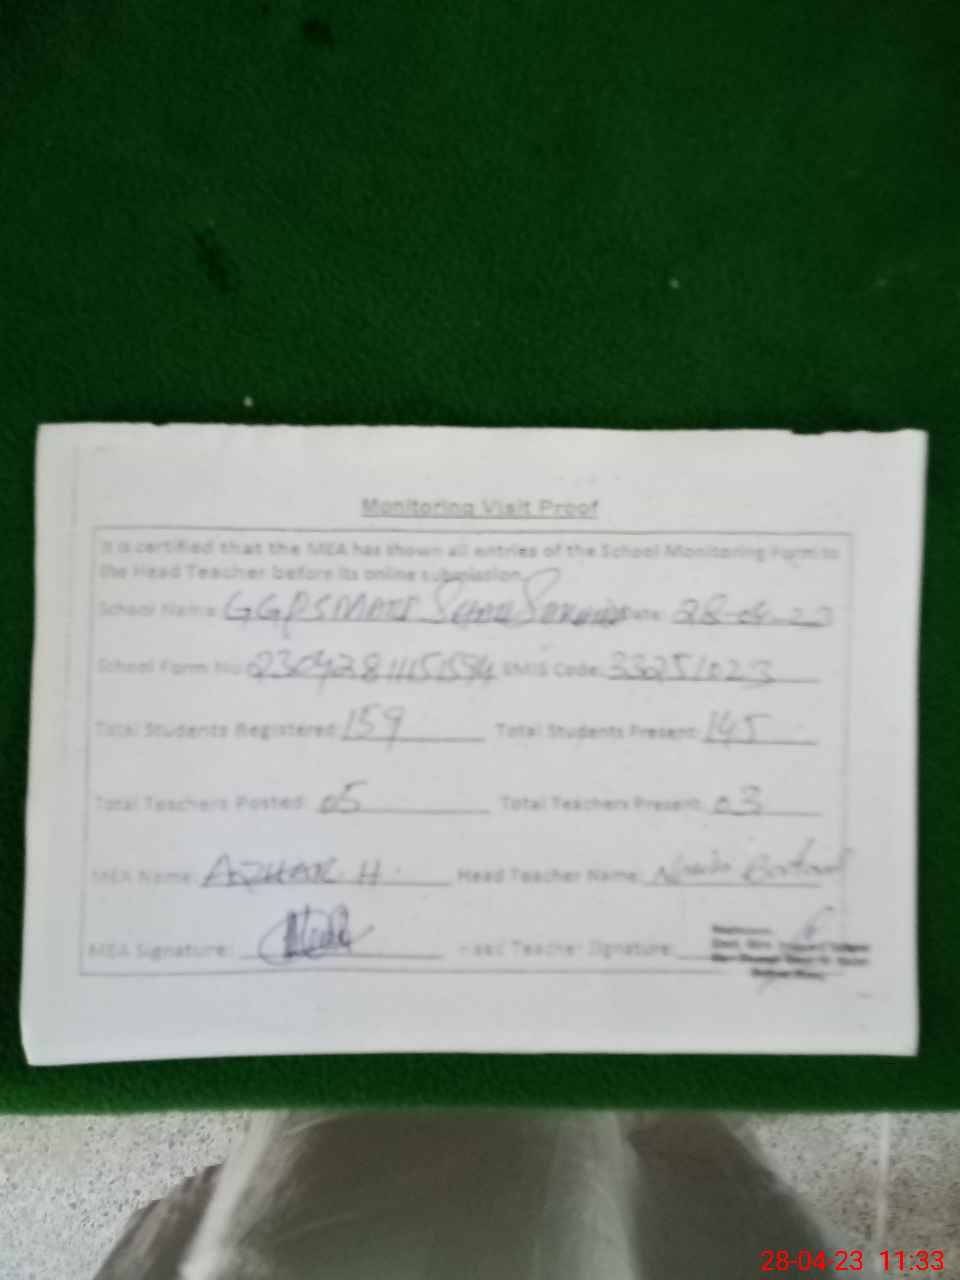 Monitoring Visit Proof
It is certified that the MEA has shown all entries of the School Monitoring Form to
the Head Teacher before its online submission
School Name: Date: 28-04-23
School Form No: EMIS Code: 33251023
Total Students Registered: 159 Total Students Present: 145
Total Teachers Posted: 05 Total Teachers Present: 03
MEA Name: AZHAR H. Head Teacher Name:
MEA Signature: Head Teacher Signature:
28-04-23 11:33